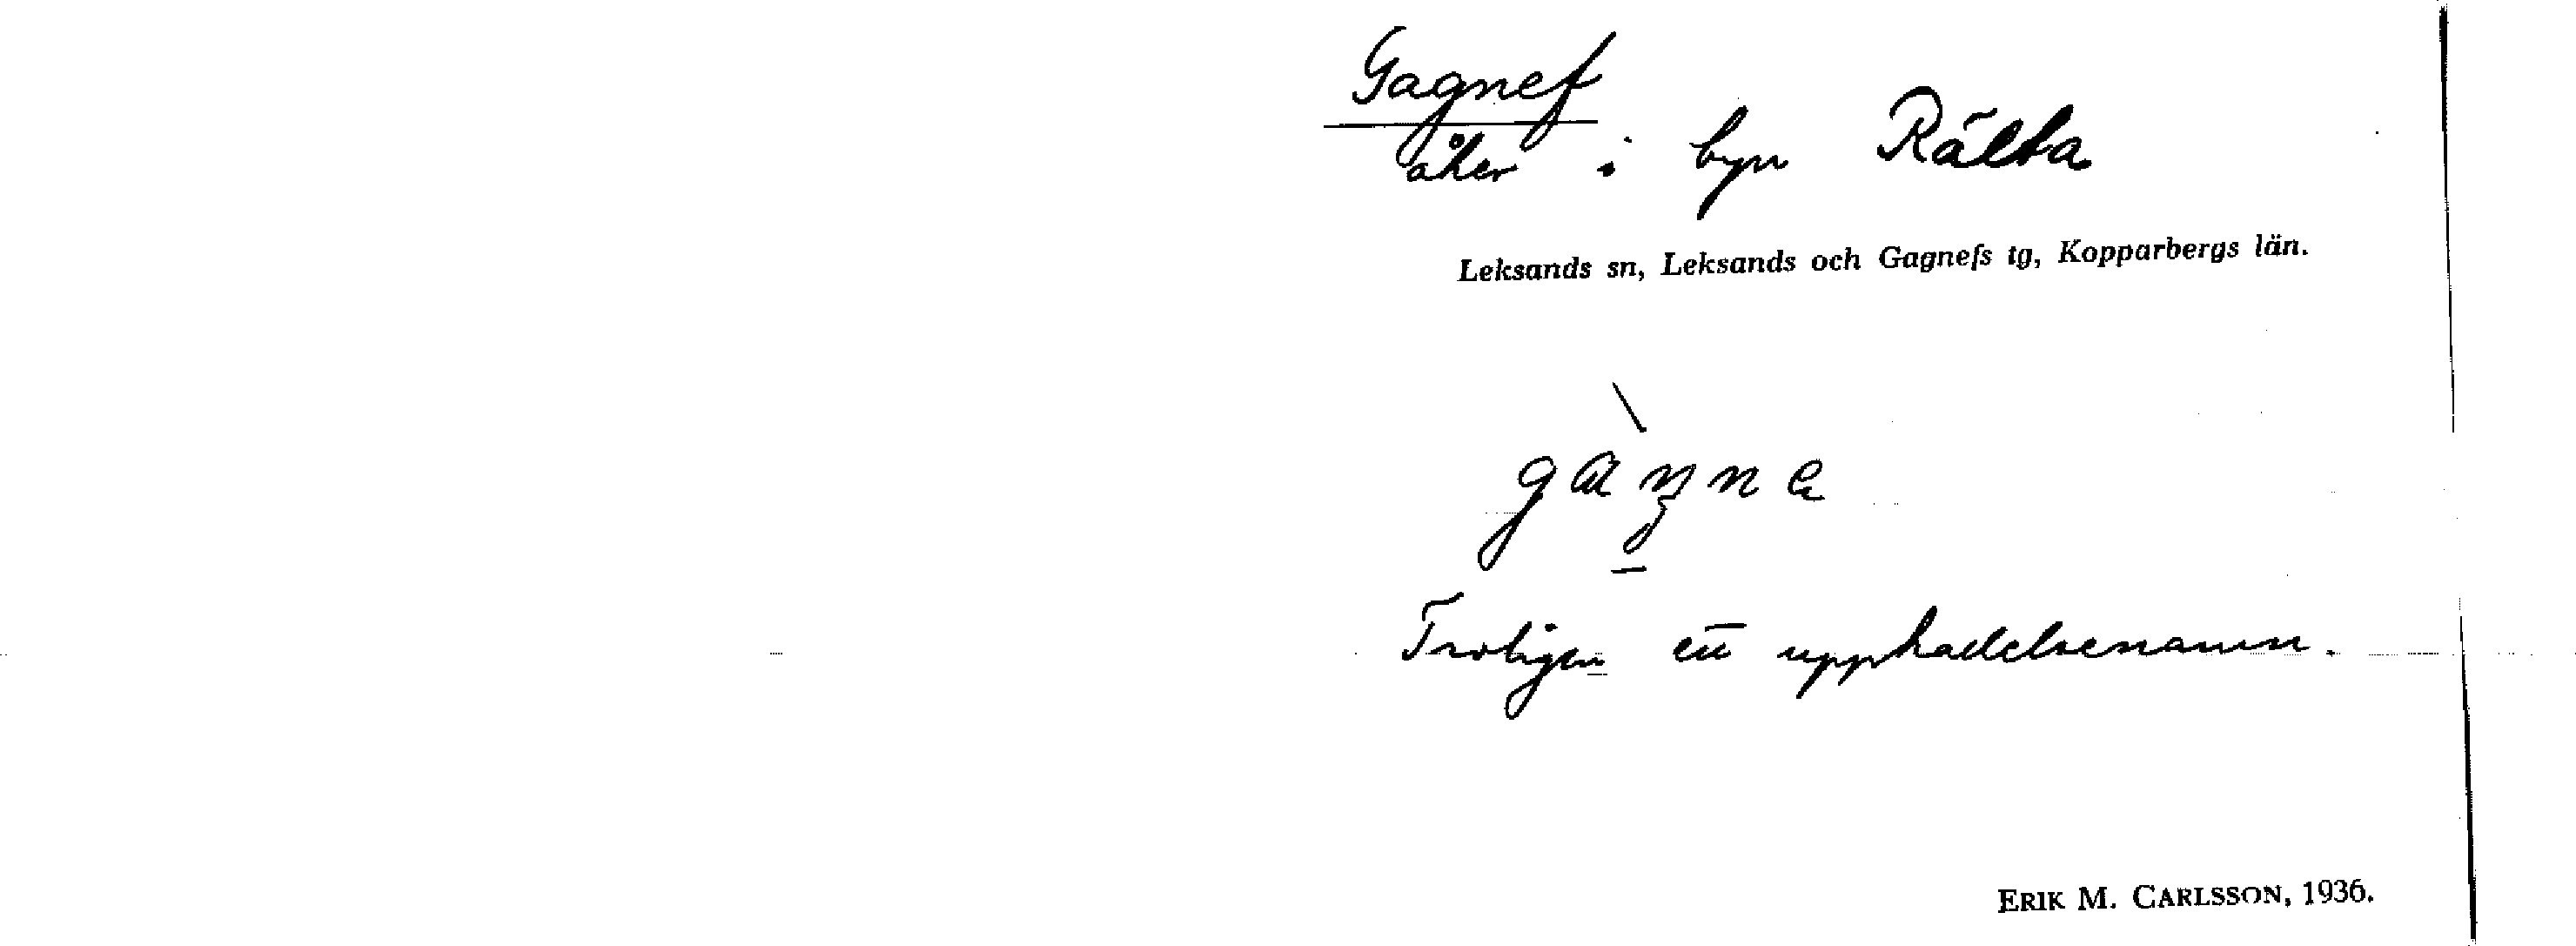 Gagnef
åker i byn Rälta
Leksands sn, Leksands och Gagnefs tg, Kopparbergs län.
gàŋne
Troligen ett uppkallelsenamn.
ERIK M. CARLSSON, 1936.